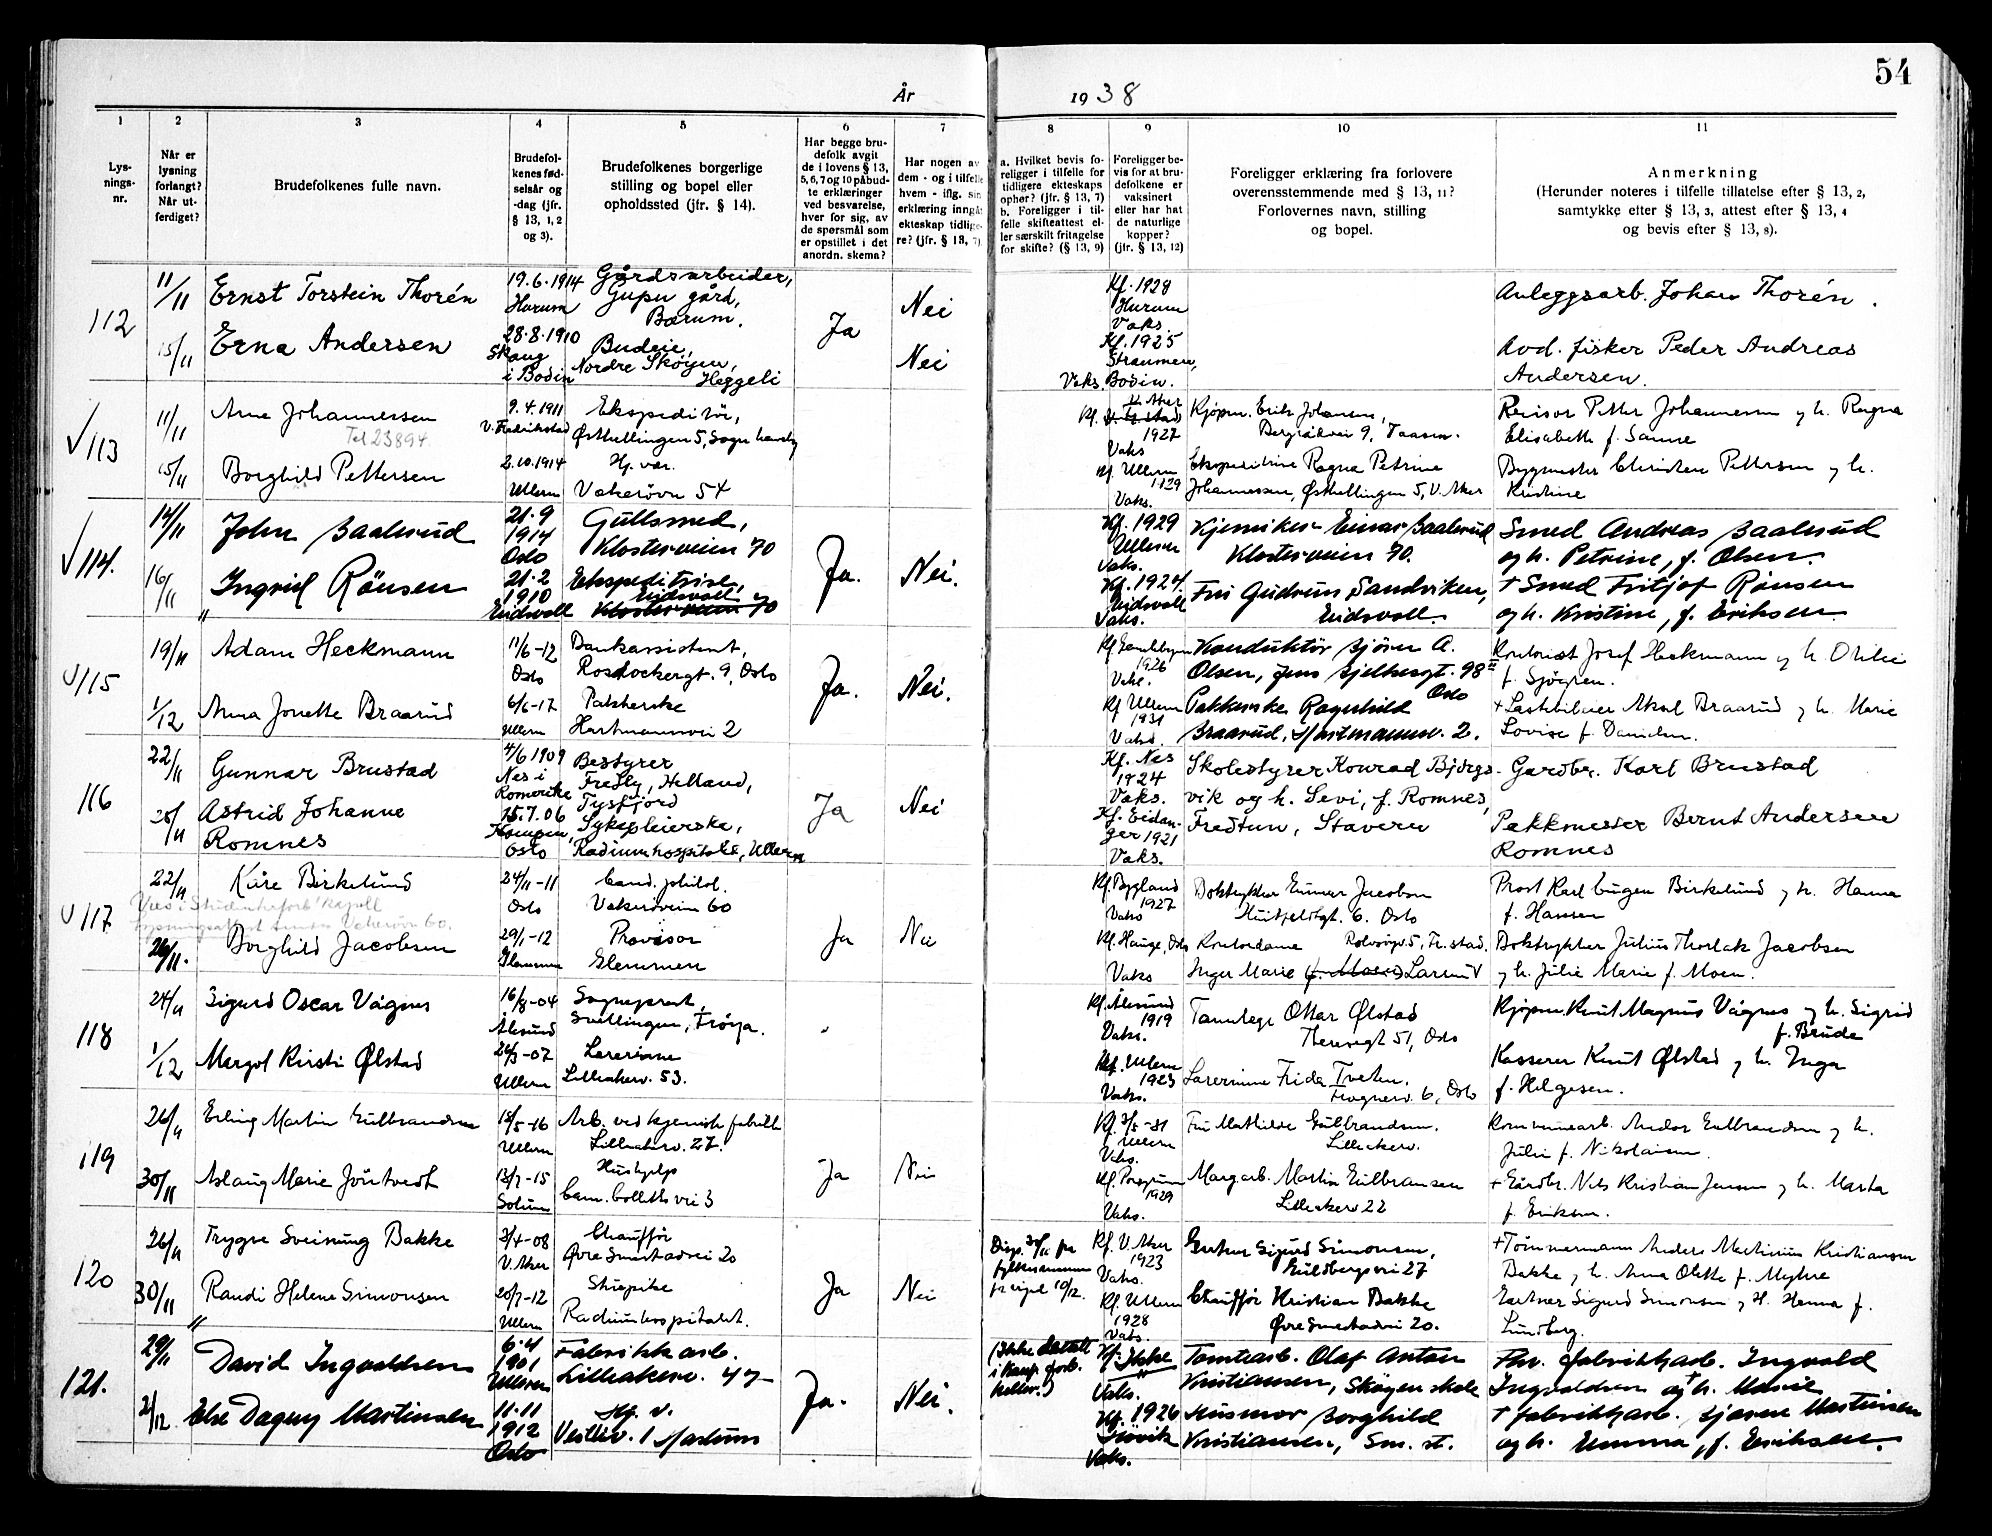 54
År 1938
1 2 3 4 5 6 7 8 9 10 11
Lys-
nings-
nr.
Når er
lysning
forlangt?
Når ut-
ferdiget?
Brudefolkenes fulle navn.
Brudefol-
kenes fød-
selsår og
-dag (jfr.
§ 13, 1, 2
og 3).
Brudefolkenes borgerlige
stilling og bopel eller
opholdssted (jfr. § 14).
Har begge bru-
defolk avgit
de i lovens § 13,
5, 6, 7 og 10 påbud-
te erklæringer
ved besvarelse,
hver for sig, av
de spørsmål som
er opstillet i det
anordn. skema?
Har nogen av
dem - og i tilfelle
hvem - iflg. sin
erklæring inngå
ekteskap tidlige-
re? (jfr. § 13, 7)
a. Hvilket bevis fo-
religger i tilfelle for
tidligere ekteskaps
ophør? (jfr. § 13, 7)
b. Foreligger i til-
felle skifteattest el-
ler særskilt fritagelse
for skifte? (§ 13, 9)
Foreligger be-
vis for at bru-
defolkene er
vaksinert
eller har hat
de naturlige
kopper?
(jfr. § 13, 12)
Foreligger erklæring fra forlovere
overensstemmende med § 13, 11?
Forlovernes navn, stilling
og bopel.
Anmerkning
(Herunder noteres i tilfelle tillatelse efter § 13, 2,
samtykke efter § 13, 3, attest efter § 13, 4
og bevis efter § 13, 8).
112
11/11 Ernst Torstein Thorén
19.6.1914
Hurum
Gårdsarbeider,
gård,
Bærum.
Ja
Nei
Kf. 1928
Hurum
Vaks.
Anleggsarb. Johan Thorén.
15/11 Erna Andersen
28.8.1910
Skaug
i Bodin
Budeie,
Nordre Skøyen,
Heggeli
Nei
Kf. 1925
Straumen,
Vaks. Bodin.
Avd. fisker Peder Andreas
Andersen.
√113
11/11 Arne Johannessen
Tel 23894.
9.4.1911
V. Fredrikstad
Ekspeditør,
Østhellingen 5,
1927
Vaks
Kjøpm. Erik Johansen,
9, Taasen.
Revisor Petter Johannessen og h. Ragna
Elisabeth f. Sanne
15/11 Borghild Pettersen
2.10.1914
Ullern
Hj. vær.
Vækerøvn 54
Kf. Ullern
1929
Vaks.
Ekspeditrise Ragna Petrine
Johannessen, Østhellingen 5, V. Aker
Bygmester Christen Pettersen og h.
Kristine
√114.
14/11 John Baalsrud
21.9
1914
Oslo
Gullsmed,
Klosterveien 70
Ja.
Nei.
Kf. 1929
Ullern
Vaks.
Kjemiker Einar Baalsrud
Klosterveien 70.
Smed Andreas Baalsrud
og h. Petrine, f. Olsen.
16/11 Ingrid Rönsen
21.2
1910
Eidsvoll
Ekspeditrise,
Eidsvoll
Klosterveien 70
Kf. 1924
Eidsvoll
Vaks.
Frk Gudrun Sandviken,
Eidsvoll.
† Smed Fritjof Rönsen
og h. Kristine, f. Eriksen.
√115
19/11 Adam Heckmann
11/6-12
Oslo
Bankassistent,
Rostockergt. 9, Oslo
Ja.
Nei.
Kf. Gamlebyen
1926
Vaks.
Konduktör Björn A.
Olsen, Jens Bjelkesgt. 98 II
Oslo
Kontorist Josef Heckmann og h. Otilie
f. Sjøgren.
1/12 Anna Jonette Braarud
6/6-17
Ullern
Pakkerske
Hartmannsvei 2
Kf Ullern
1931
Vaks.
Pakkerske Ragnhild
Braarud, Hartmannsv. 2.
+ Lastebileier Aksel Braarud og h. Marie
Lovise f. Danielsen.
116
22/11 Gunnar Brustad
4/6 1909
Nes i
Romerike
Bestyrer
Fredly, Helland,
Tysfjord
Ja
Nei
Kf. Nes
1924
Vaks.
Skolestyrer Konrad Bjørgs-
vik og h. Sevi, f. Romnes,
Fredtun, Stavern
Gardbr. Karl Brustad
28/11 Astrid Johanne
Romnes
15.7.06
Kampen,
Oslo
Sykepleierske,
Radiumhospitalet, Ullern
Kf. Eidan-
ger 1921
Vaks.
Pakkmester Bernt Andersen
Romnes
√117
22/11 Kåre Birkelund
24/11-11
Oslo
Cand. philol.
Vækerøveien 60
Ja
Nei
Kf. Bygland
1927
Vaks
Boktrykker Gunnar Jacobsen
Huitfeldtgt. 6. Oslo
Prost Karl Eugen Birkelund og h. Hanna
f. Hansen
26/11. Borghild Jacobsen
29/1-12
Glemmen
Provisor
Glemmen
Kf. Hauge, Oslo
Vaks
Kontordame
Inger Marie (f. Moen) Larsen
Boktrykker Julius Thorlak Jacobsen
og h. Julie Marie f. Moen.
118
24/11 Sigurd Oscar Vågnes
16/8-04
Ålesund
Sogneprest,
Svellingen, Frøya.
Kf. Ålesund
1919
Vaks.
Tannlege Ottar Ølstad
Theresesgt 51, Oslo
Kjøpm. Knut Magnus Vågnes og h. Sigrid
f. Brude
1/12 Margot Kirsti Ølstad
24/3-07
Ullern
Lærerinne
Lilleakerv. 53.
Kf. Ullern
1923
Vaks.
Lærerinne Frida Tveten.
Frognerv. 6, Oslo
Kasserer Knut Ølstad og h. Inga
f. Helgesen.
119
26/11 Erling Martin Gulbrandsen
15/5-16
Ullern
Arb. ved kjemisk fabrikk
Lilleakerv. 27.
Ja
Nei
Kf. 3/5-31
Ullern
Vaks.
Fru Mathilde Gulbrandsen.
Lilleakerv.
Kommunearb. Andor Gulbrandsen og h.
Julie f. Nikolaisen.
30/11 Aslaug Marie Jöntvedt
13/7-15
Solum
Hushjelp
Cam. Colletts vei 3
Kf. Porsgrunn
1929
Vaks.
Margarb. Martin Gulbransen
Lilleakerv 22
+ Gårdbr. Nils Kristian Jensen og h. Marta
f. Eriksen.
120
26/11 Trygve Sveinung Bakke
3/4-08
V. Aker
Chauffør
Øvre Smestadvei 20
Ja
Nei
Disp. 30/11 fra
fylkesmannen
10/12.
Kf. V. Aker
1923
Vaks.
Gartner Sigurd Simonsen,
Guldbergsvei 27
+ Tömmermann Anders Martinius Kristiansen
Bakke og h. Anna Olette f. Myhre
30/11 Randi Helene Simonsen
20/7-12
Ullern
Stuepike
Radiumhospitalet.
Kf. Ullern
1928
Vaks.
Chauffør Kristian Bakke
Øvre Smestadvei 20.
Gartner Sigurd Simonsen og H. Hanna f.
Lundberg.
121.
29/11 David Ingvaldsen
6.4
1901
Ullern
Fabrikkarb.
Lilleakerv. 47
Ja.
Nei.
(Ikke betalt
i Kaup. forb.
heller.)
Kf.
Ikke
Vaks.
Tomtearb. Olaf Anton
Kristiansen, Skøyen skole
Fhv. fabrikkarb. Ingvald
Ingvaldsen og † h. Marie
2/12 Else Dagny Martinsen
11.11
1912
Oslo
Hj. v.
Vestliv. 1
Kf. 1926
Gjøvik
Vaks.
Husmor Borghild
Kristiansen, Sm. st.
† fabrikkarb. Bjarne Martinsen
og h. Emma, f. Eriksen.